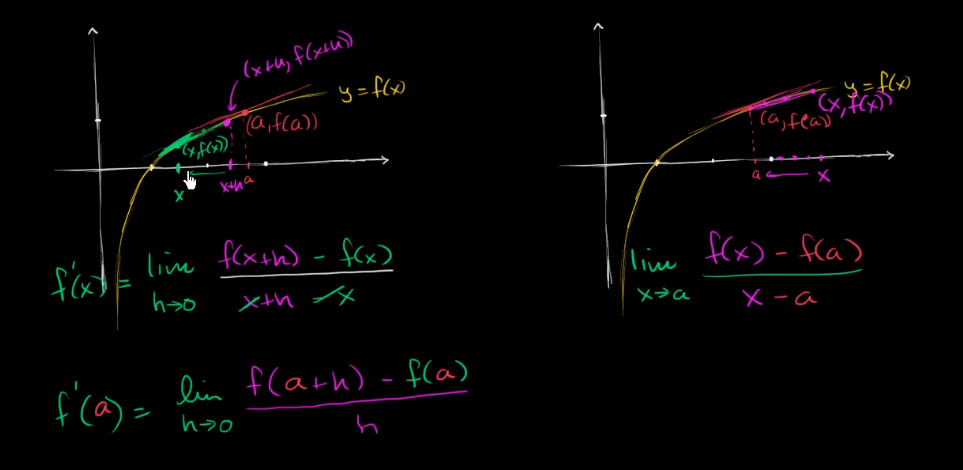 (x+h, f(x+h))
y = f(x)
(a, f(a))
(x, f(x))
x
x+h
a
f'(x) = lim h→0 f(x+h) - f(x) / x+h - x
f'(a) = lim h→0 f(a+h) - f(a) / h
y = f(x)
(x, f(x))
(a, f(a))
a
x
lim x→a f(x) - f(a) / x - a